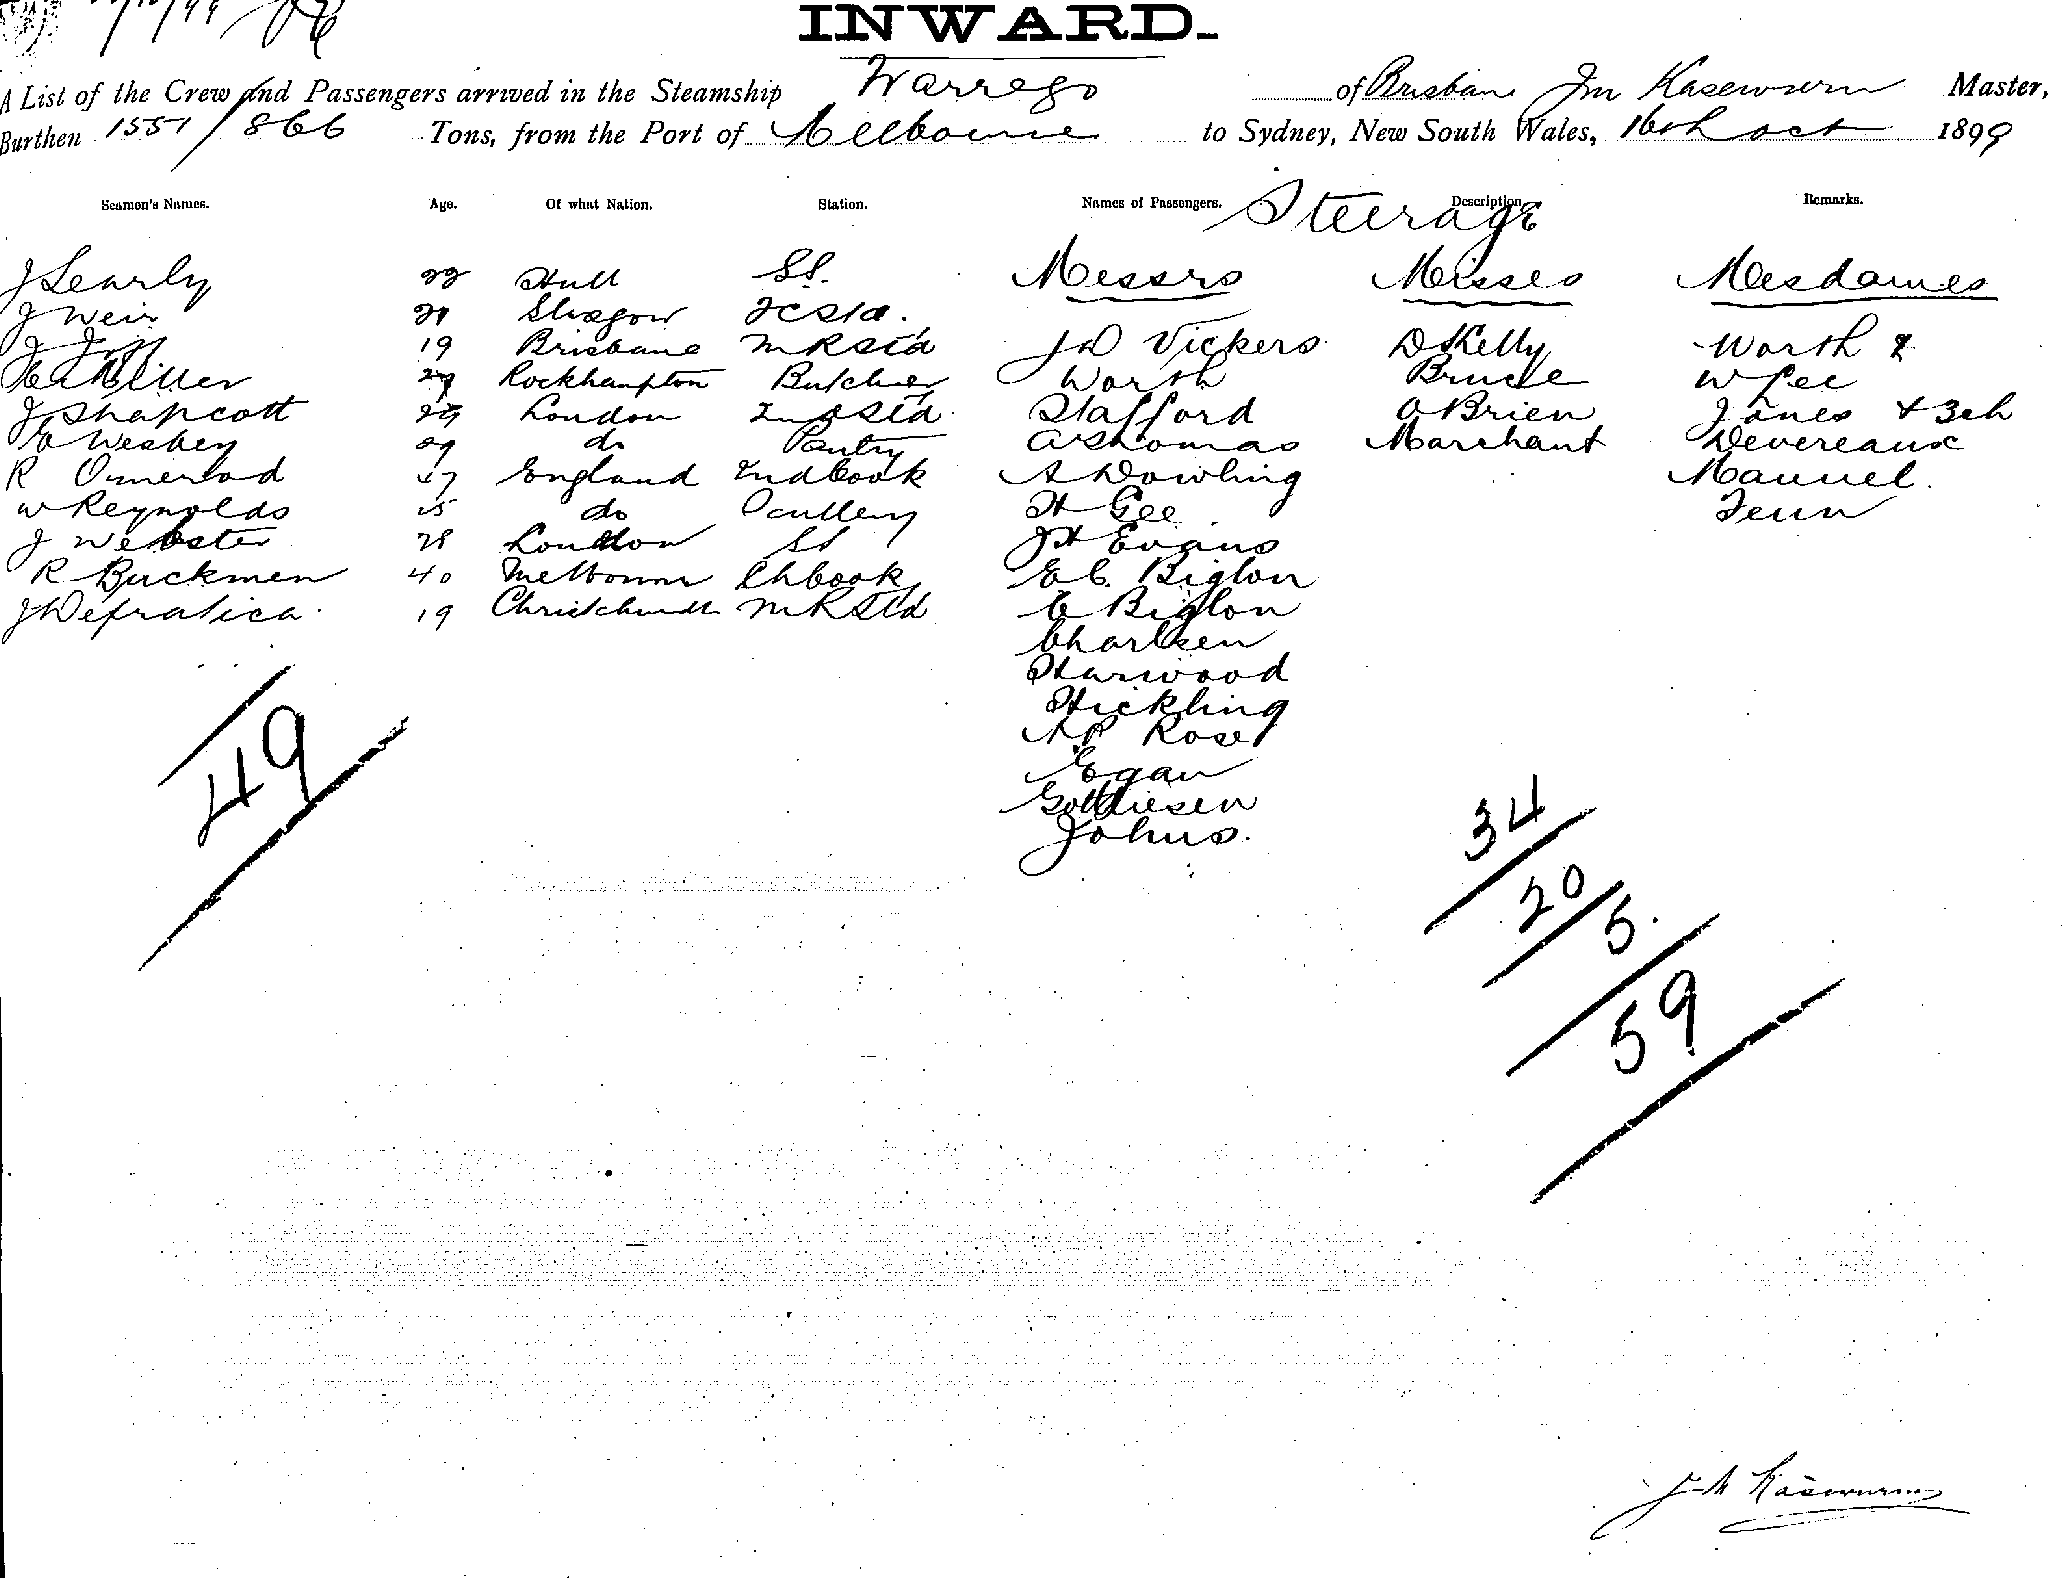 INWARD.
A List of the Crew and Passengers arrived in the Steamship Warrego of Brisbane Jm Kasewurm Master,
Burthen 1551/866 Tons, from the Port of Melbourne to Sydney, New South Wales, 16th Oct 1899
Seamen's Names. Age. Of what Nation. Station. Names of Passengers. Steerage Description Remarks.
J Searly 22 Hull SS. Messrs Misses Mesdames
J Weir 21 Glasgow FCStd.
J 19 Brisbane MRStd J D Vickers D Kelly Worth &
Miller Rockhampton Butcher Worth Bruce W Lee
J Shapcott 29 London 2nd Std Stafford O'Brien Jones + 3ch
Wesbey 29 do Pantry A Thomas Marchant Devereaux
R Omerod 47 England 2nd Cook A Dowling Mannel.
W Reynolds 25 do Scullery H Gee Fenn
J Webster 28 London SS J H Evans
R Buckmen 40 Melbourne Ch Cook E C Biglon
J Defratica. 19 Christchurch MRStd C Biglon
Charlsen
Harwood
Hickling
A R Rose
Egan
Johns.
49
34
20/5.
59
J M Käsewurm